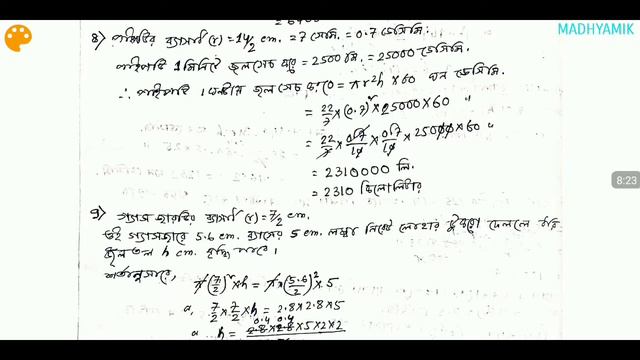 MADHYAMIK
৪) পাইপটির ব্যাসার্ধ (r) = 14/2 cm. = 7 সেমি. = 0.7 ডেসিমি.
পাইপটি 1 মিনিটে জলসেচ করে = 2500 মি. = 25000 ডেসিমি.
∴ পাইপটি 1 ঘন্টায় জলসেচ করে = πr²h × 60 ঘন ডেসিমি.
= 22/7 × (0.7)² × 25000 × 60 "
= 22/7 × 07/10 × 07/10 × 25000 × 60 "
= 2310000 লি.
= 2310 কিলোলিটার
8:23
9) গ্যাস জারটির ব্যাসার্ধ (r) = 7/2 cm.
ওই গ্যাসজারে 5.6 cm. ব্যাসের 5 cm. লম্বা নিরেট লোহার টুকরো ফেললে
জলতল h cm. বৃদ্ধি পাবে।
শর্তানুসারে,
π(7/2)² × h = π × (5.6/2)² × 5
a, 7/2 × 7/2 × h = 2.8 × 2.8 × 5
0.4 0.4
a h = 2.8 × 2.8 × 5 × 2 × 2